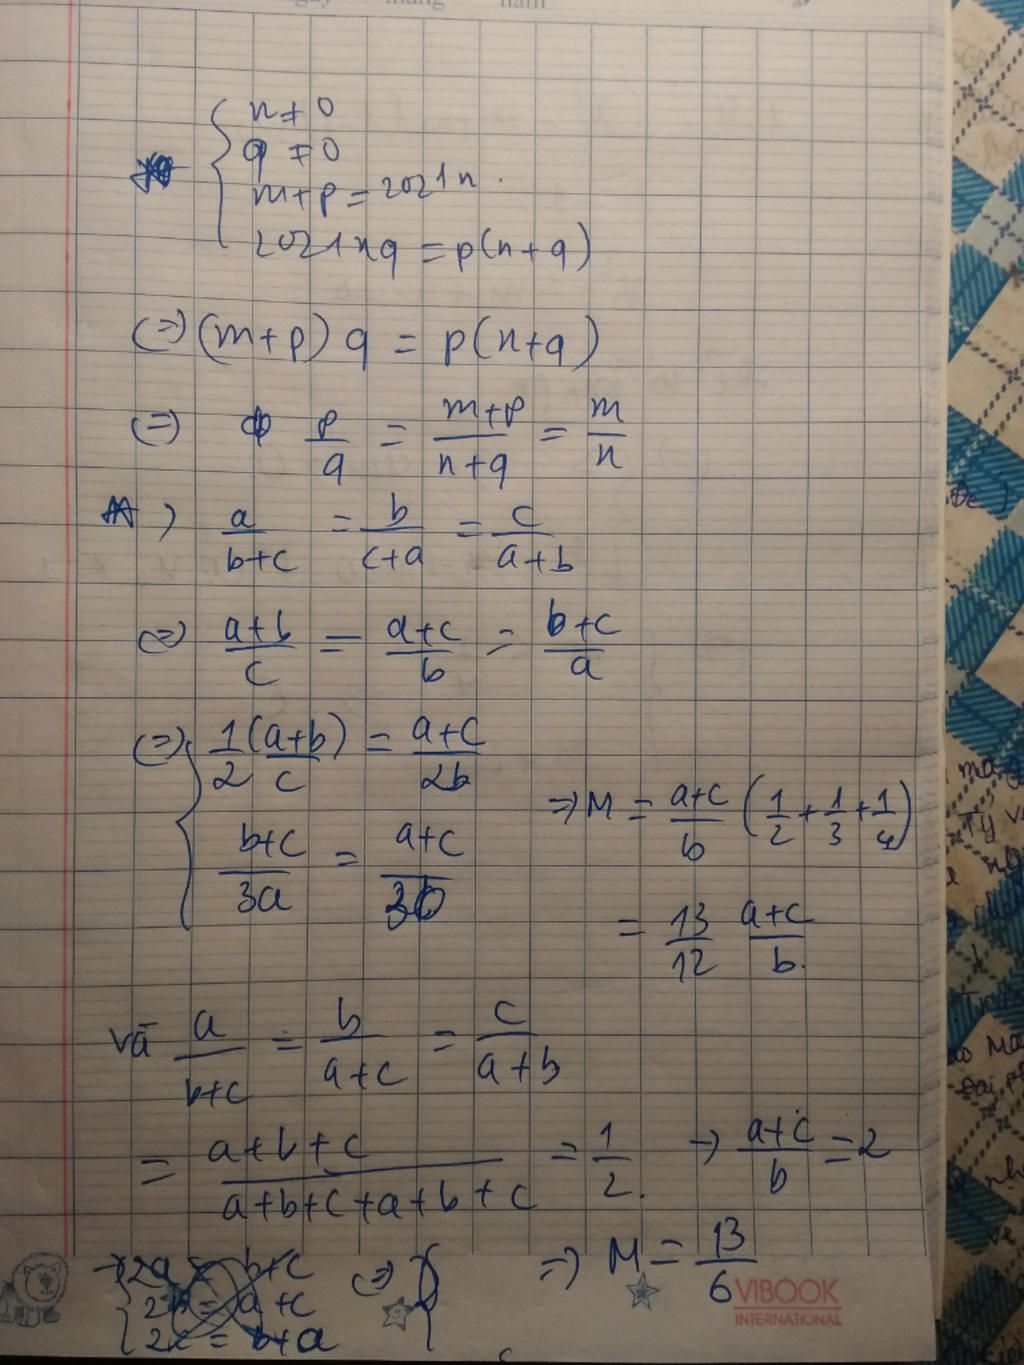 tháng năm
n ≠ 0
q ≠ 0
m+p = 2021n.
2021nq = p(n+q)
(=) (m+p) q = p(n+q)
(=) p/q = (m+p)/(n+q) = m/n
a/(b+c) = b/(c+a) = c/(a+b)
(=) (a+b)/c = (a+c)/b = (b+c)/a
(=) 1/2 (a+b)/c = (a+c)/2b
(b+c)/3a = (a+c)/3b
=) M = (a+c)/b (1/2 + 1/3 + 1/4)
= 13/12 (a+c)/b.
và a/(b+c) = b/(a+c) = c/(a+b)
= (a+b+c)/(a+b+c+a+b+c) = 1/2. → (a+c)/b = 2
=) M = 13/6
2a = b+c (=)
= a+c
= b+a
VIBOOK
INTERNATIONAL